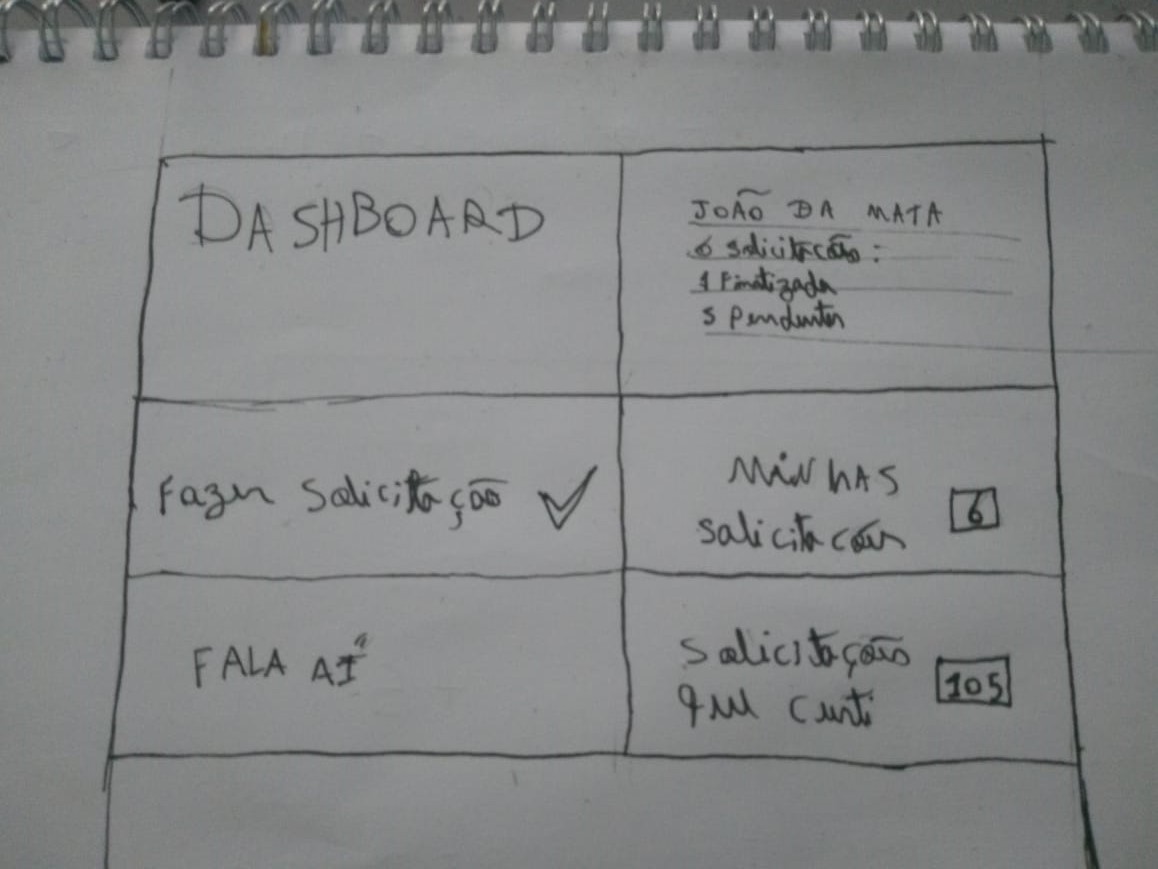 DASHBOARD
JOÃO DA MATA
6 Solicitação:
1 Finalizada
5 Pendentes
Fazer Solicitação
MINHAS
Solicitações
6
FALA AÍ
Solicitação
que curti
105